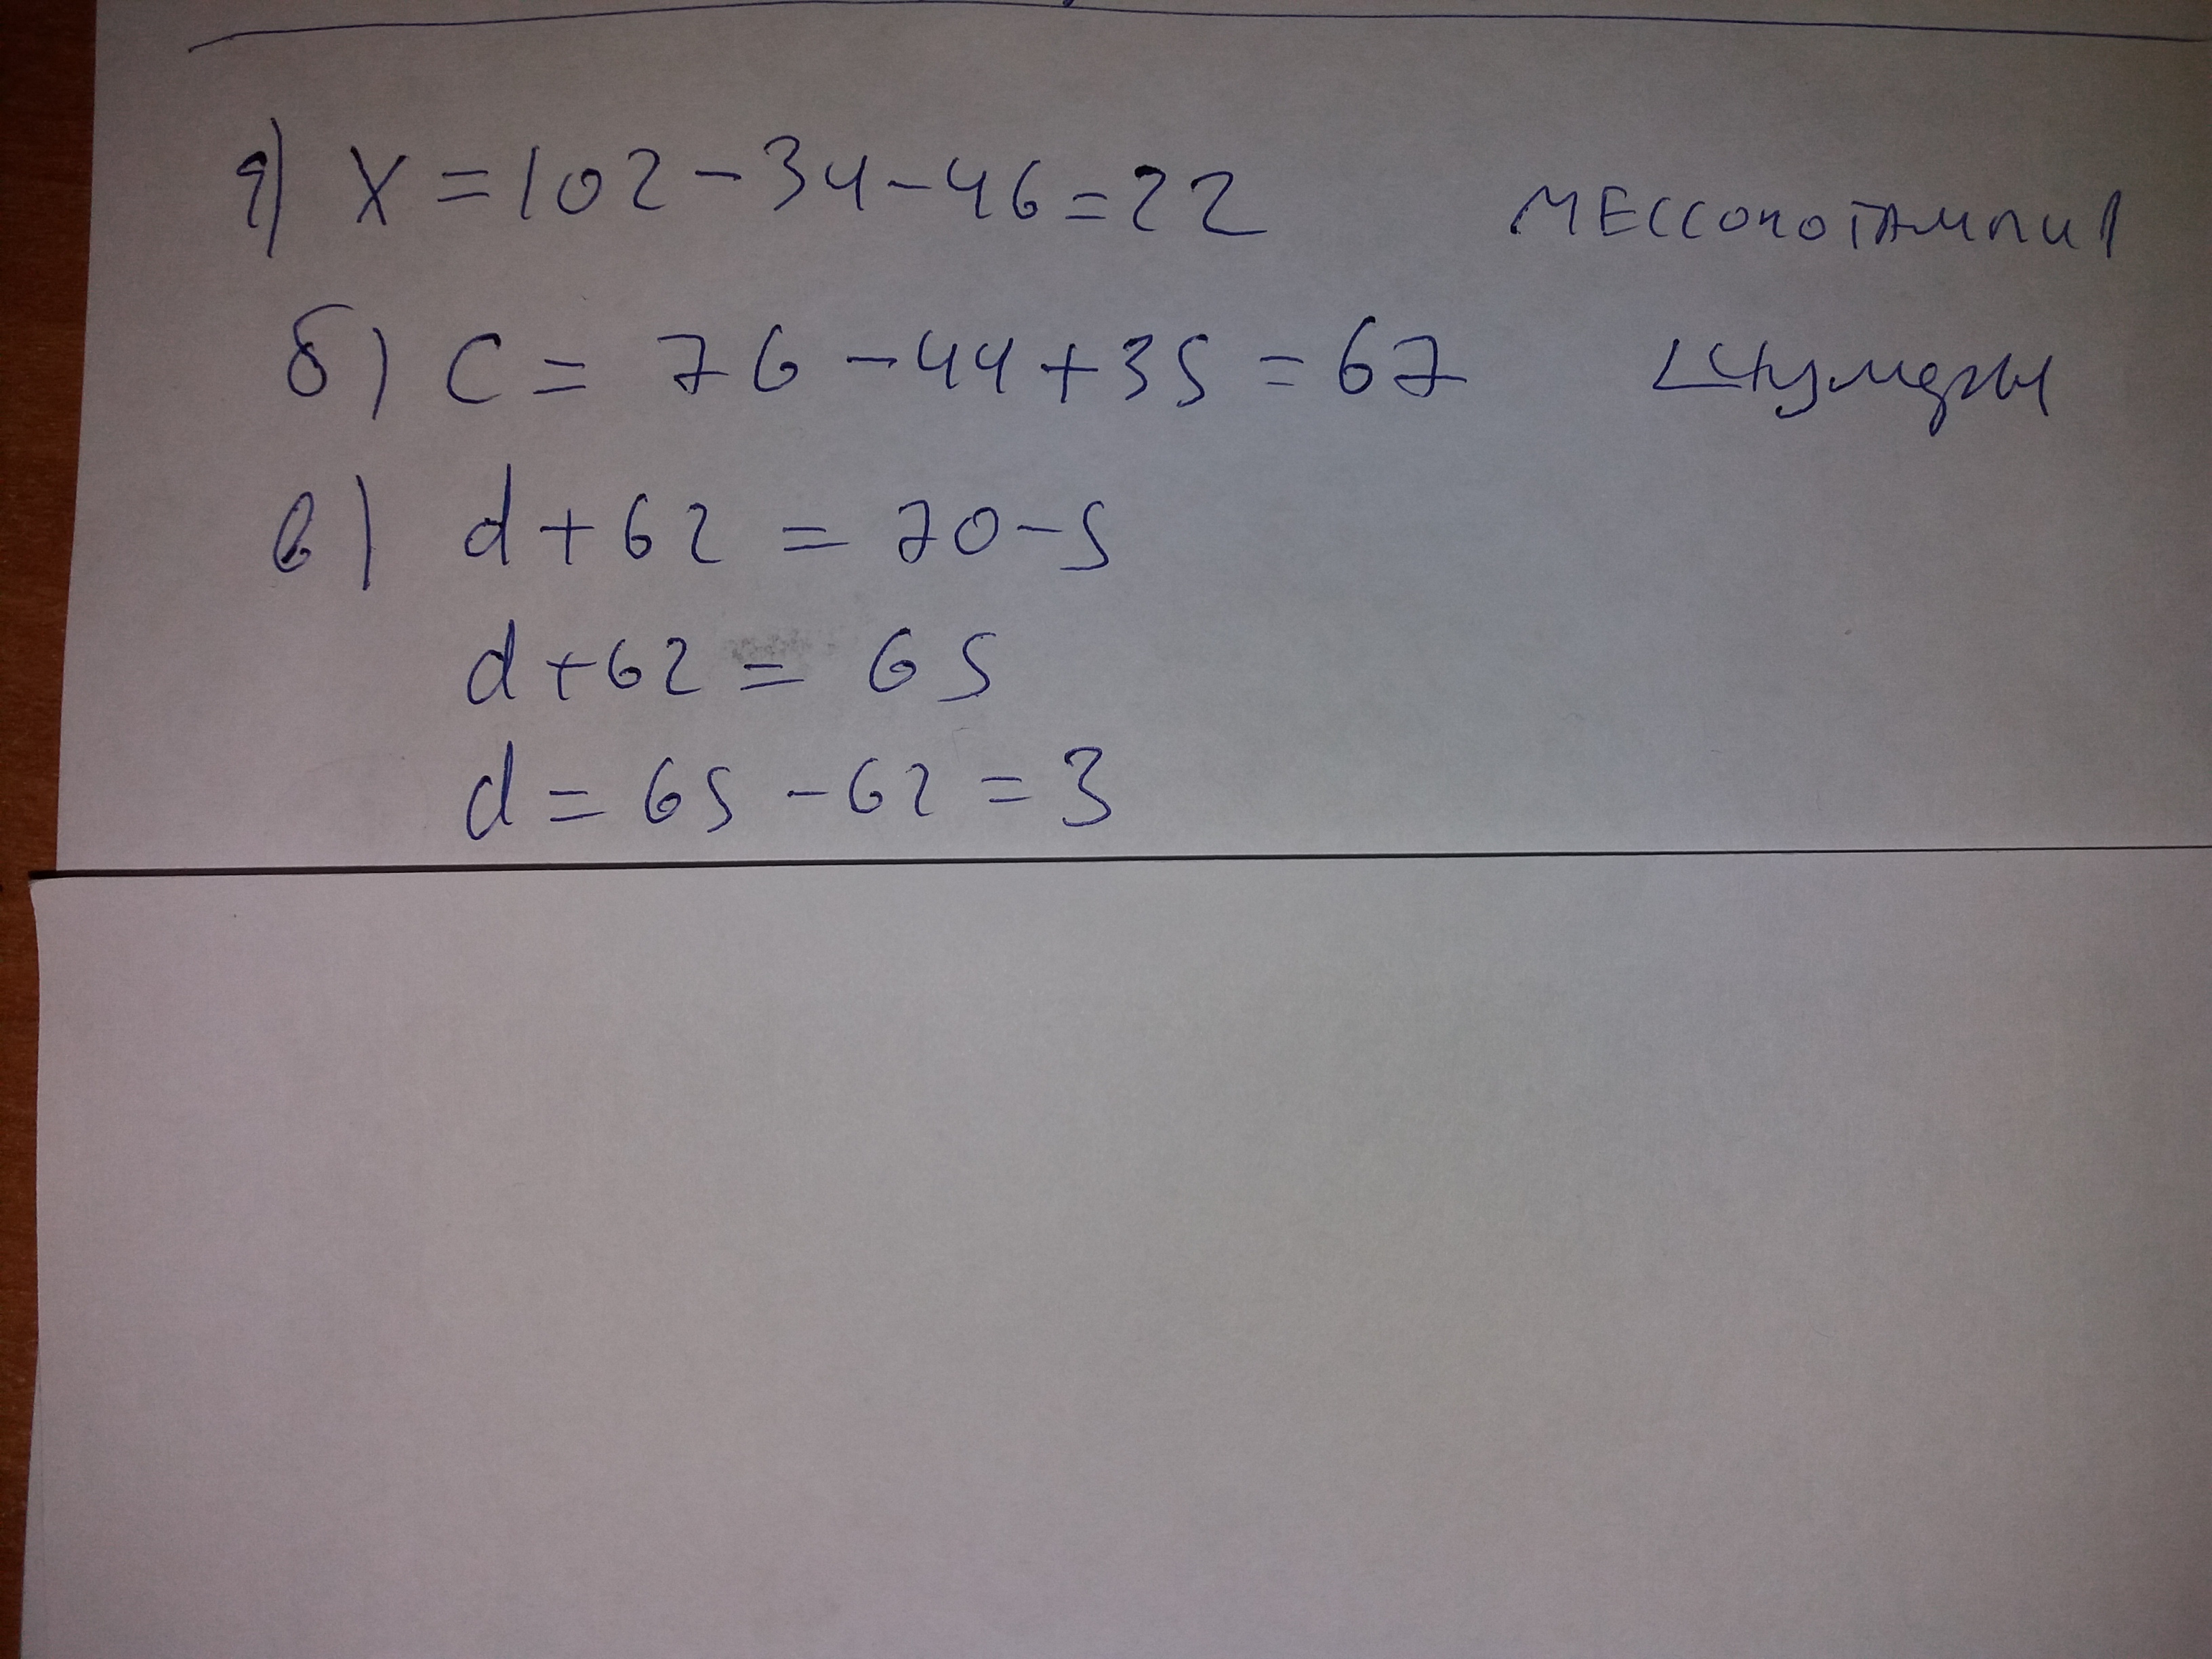 а) x = 102 - 34 - 46 = 22
б) c = 76 - 44 + 35 = 67
в) d + 62 = 70 - 5
d + 62 = 65
d = 65 - 62 = 3